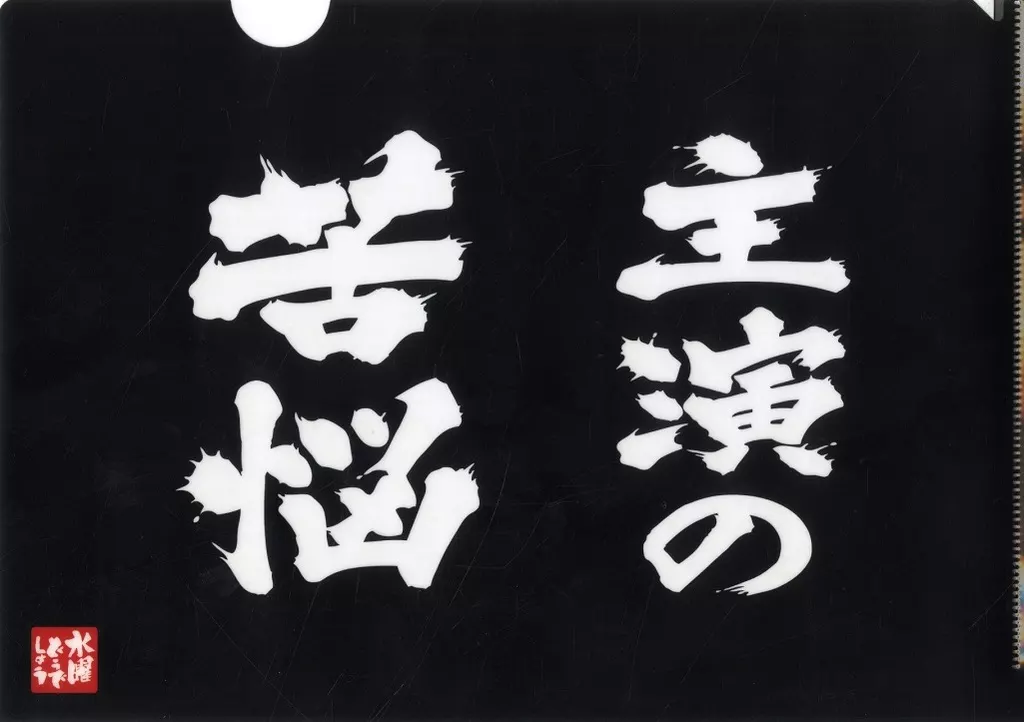 主演の
苦悩
水曜
どうで
しょう